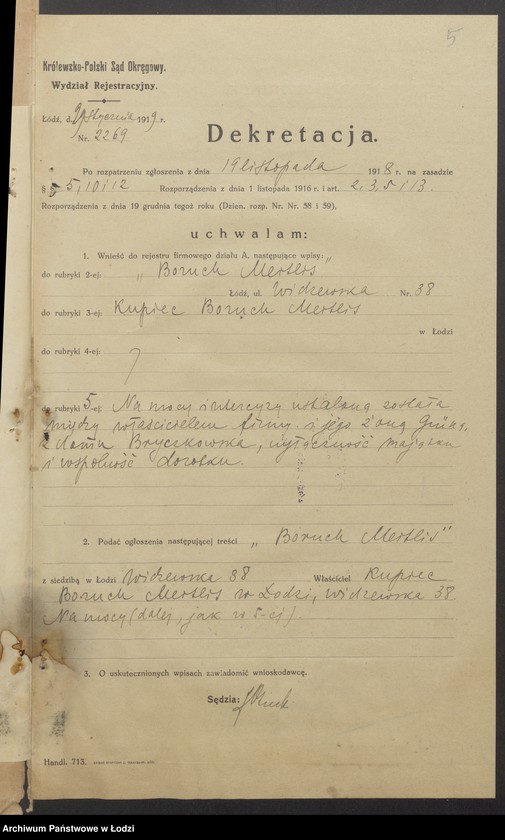 5
Królewsko-Polski Sąd Okręgowy.
Wydział Rejestracyjny.
Łódź, d. Stycznia 1919 r.
Nr. 2269
Dekretacja.
Po rozpatrzeniu zgłoszenia z dnia 19 listopada 1918 r. na zasadzie
§ 5, 10 i 12 Rozporządzenia z dnia 1 listopada 1916 r. i art. 2, 3, 5 i 13
Rozporządzenia z dnia 19 grudnia tegoż roku (Dzien. rozp. Nr. Nr. 55 i 59),
uchwalam:
1. Wnieść do rejestru firmowego działu A. następujące wpisy:
do rubryki 2-ej: „Boruch Mertlis"
Łódź, ul. Widzewska Nr. 38
do rubryki 3-ej: Kupiec Boruch Mertlis
w Łodzi
do rubryki 4-ej:
do rubryki 5-ej: Na mocy intercyzy ustaloną została
między właścicielem firmy i jego żoną
z domu Bryczkowska, wyłączność majątku
i wspólność dorobku.
2. Podać ogłoszenia następującej treści „Boruch Mertlis"
z siedzibą w Łodzi Widzewska 38 Właściciel Kupiec
Boruch Mertlis w Łodzi, Widzewska 38.
Na mocy (dalej, jak w 5-ej).
3. O uskutecznionych wpisach zawiadomić wnioskodawcę.
Sędzia:
Handl. 713.
Archiwum Państwowe w Łodzi